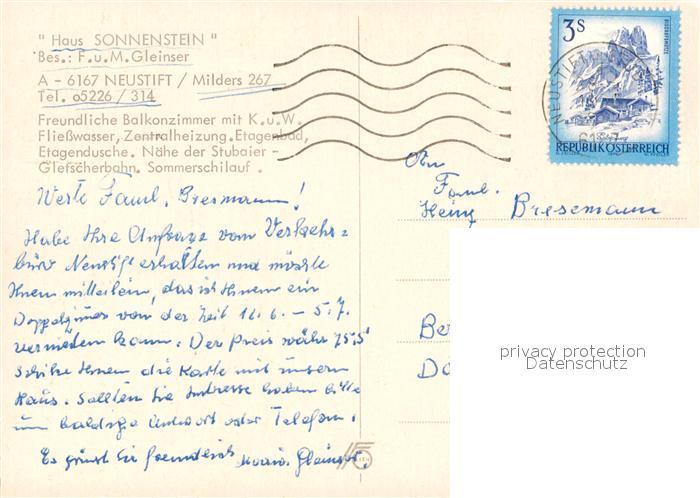 " Haus SONNENSTEIN "
Bes.: F.u.M.Gleinser
A - 6167 NEUSTIFT / Milders 267
Tel. o5226 / 314
Freundliche Balkonzimmer mit K.u.W.
Fließwasser, Zentralheizung.Etagenbad,
Etagendusche. Nähe der Stubaier -
Gletscherbahn. Sommerschilauf .
3S
NEUSTIFT
REPUBLIK ÖSTERREICH
An
Faml.
Heinz Bresemann
Werte Faml. Bresmann!
Habe Ihre Anfrage vom Verkehrs=
büro Neustift erhalten und möchte
Ihnen mitteilen, das ich Ihnen ein
Doppelzimer von der Zeit 12.6. – 5.7.
vermieten kann. Der Preis wäre 75 S
Schike Ihnen die Karte mit unserm
Haus. Sollten Sie Interesse haben bitte
um baldige Antwort oder Telefon.
Es grüsst Sie freundlich Gleinser.
Be
Do
privacy protection
Datenschutz